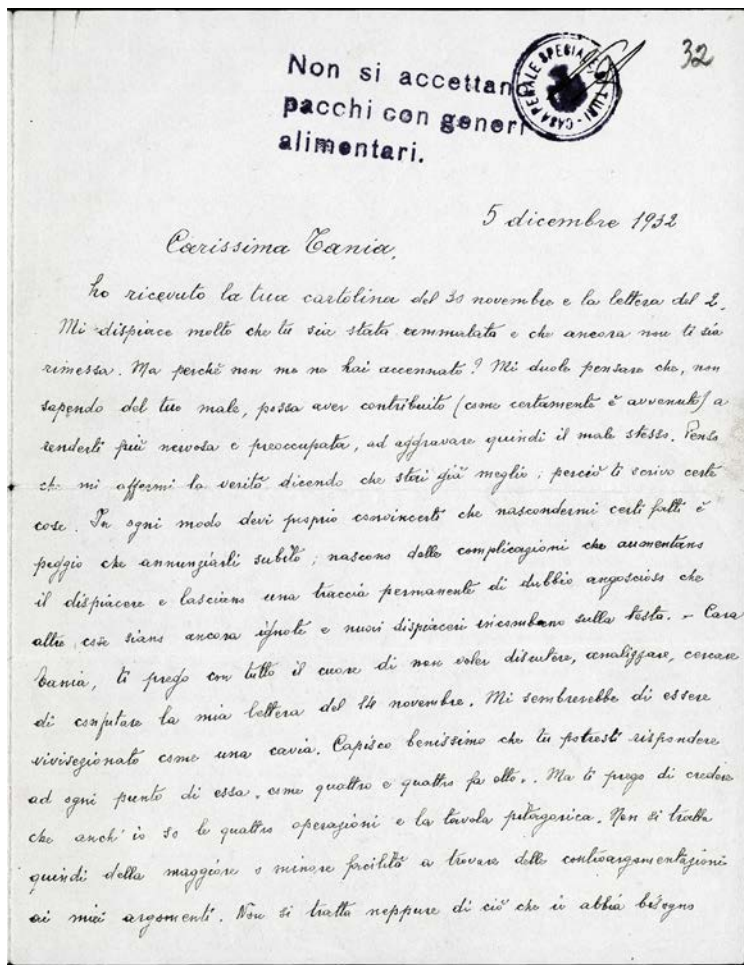 32
Non si accettan
pacchi con generi
alimentari.
CASA PENALE SPECIALE DI TURI
5 dicembre 1932
Carissima Tania,
ho ricevuto la tua cartolina del 30 novembre e la lettera del 2.
Mi dispiace molto che tu sia stata ammalata e che ancora non ti sia
rimessa. Ma perché non me ne hai accennato? Mi duole pensare che, non
sapendo del tuo male, possa aver contribuito (come certamente è avvenuto) a
renderti più nervosa e preoccupata, ad aggravare quindi il male stesso. Penso
che mi affermi la verità dicendo che stai già meglio; perciò ti scrivo certe
cose. In ogni modo devi proprio convincerti che nascondermi certi fatti è
peggio che annunziarli subito; nascono delle complicazioni che aumentano
il dispiacere e lasciano una traccia permanente di dubbio angoscioso che
altre cose siano ancora ignote e nuovi dispiaceri incombano sulla testa. – Cara
Tania, ti prego con tutto il cuore di non voler discutere, analizzare, cercare
di confutare la mia lettera del 14 novembre. Mi sembrerebbe di essere
vivisezionato come una cavia. Capisco benissimo che tu potresti rispondere
ad ogni punto di essa, come quattro e quattro fa otto.. Ma ti prego di credere
che anch'io so le quattro operazioni e la tavola pitagorica. Non si tratta
quindi della maggiore o minore facilità a trovare delle controargomentazioni
ai miei argomenti. Non si tratta neppure di ciò che io abbia bisogno